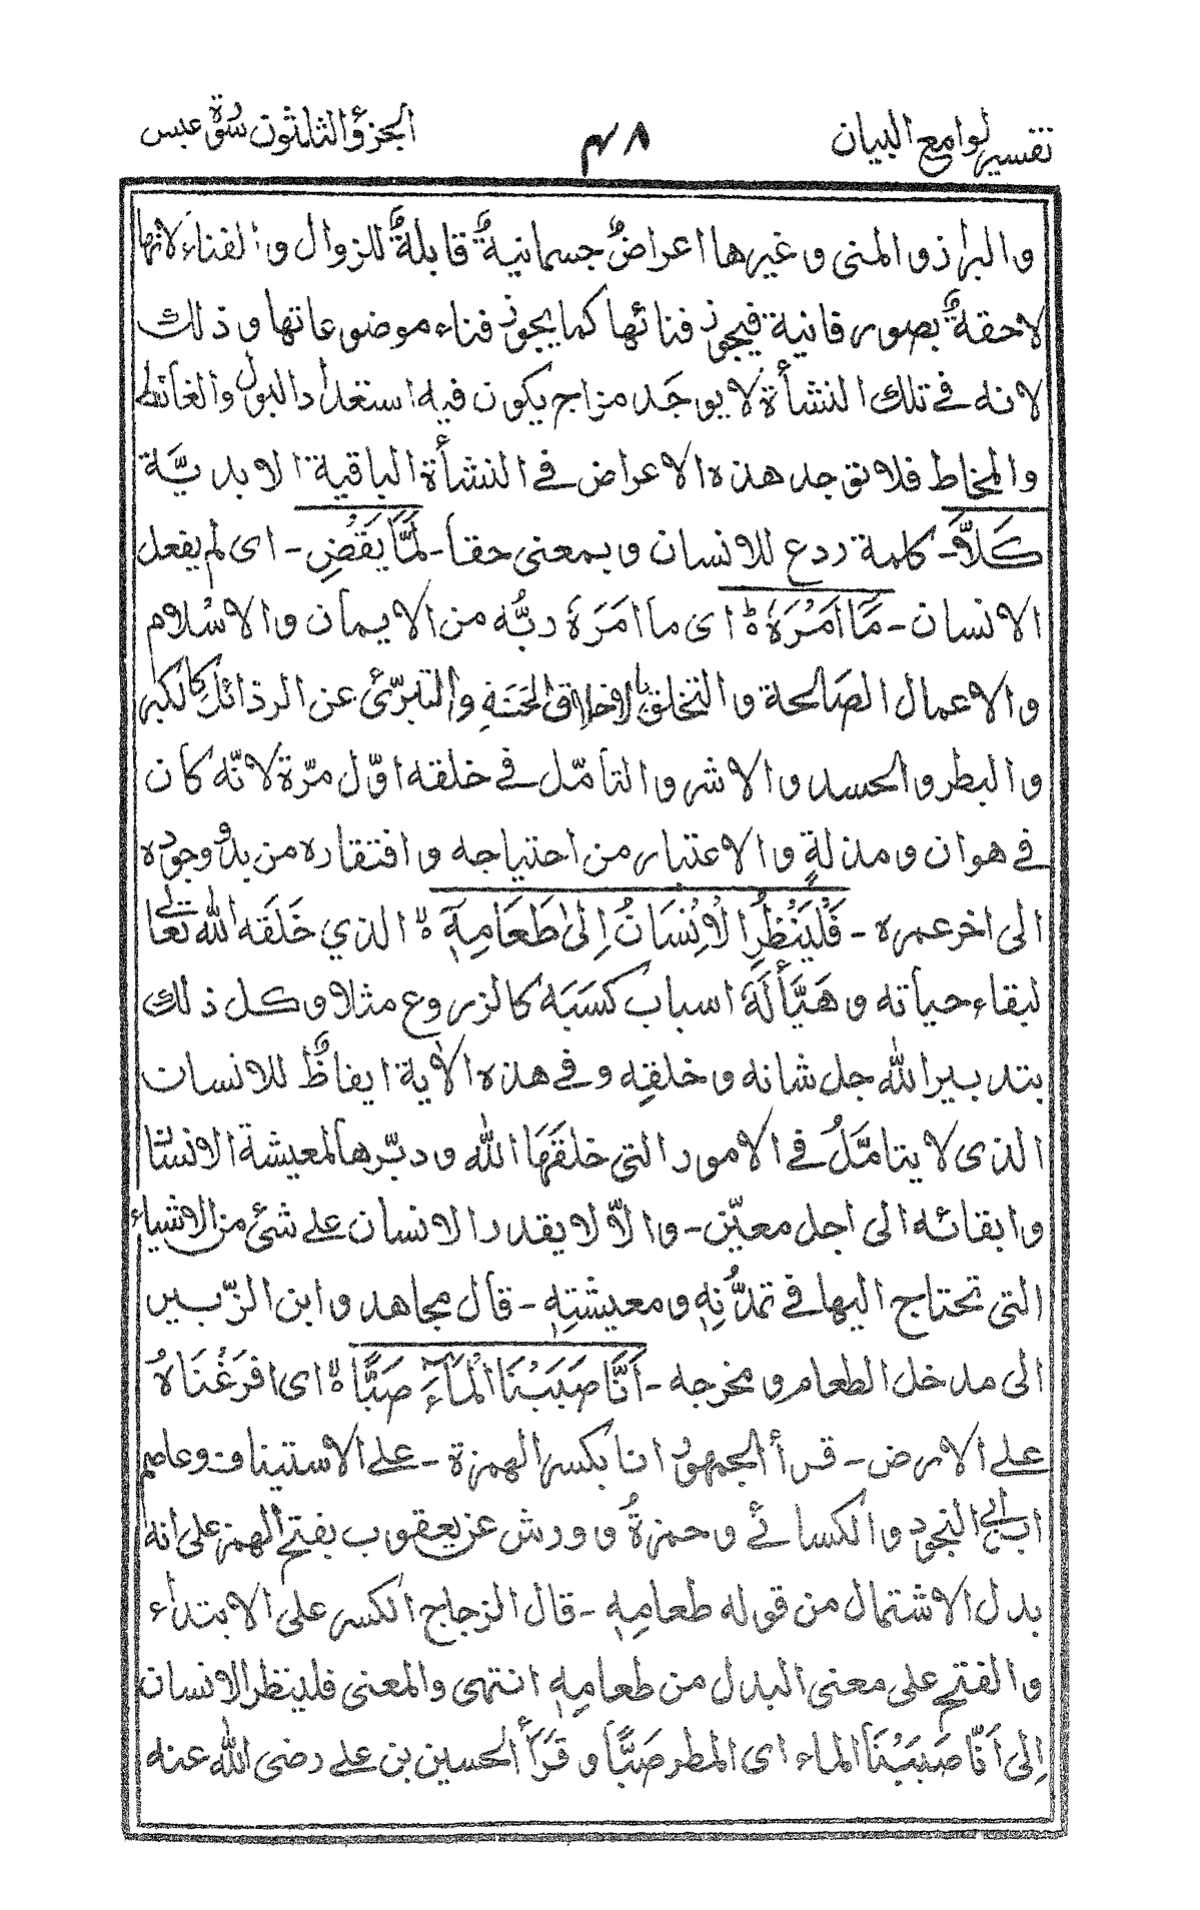 تفسير لوامع البيان ٤٨ الجزؤ الثلثون سورة عبس
والبراز والمنى وغيرها اعراضٌ جسمانيةٌ قابلةٌ للزوال والفناء لانها
لاحقةٌ بصور فانية فيجوز فنائها كما يجوز فناء موضوعاتها وذلك
لانه في تلك النشأة لا يوجَد مزاج يكون فيه استعداد البول والغائط
والمخاط فلا توجد هذه الاعراض في النشأة الباقية الابديَّة
كَلاَّ- كلمة ردع للانسان وبمعنى حقاً- لَمَّا يَقْضِ- اى لم يفعل
الانسان- مَا اَمَرَهٗ ؕ اى ما امَرَهٗ ربُّه من الايمان والاسْلام
والاعمال الصَالحة والتخلق بالاخلاق الحَسَنةِ والتبرّئ عن الرذائل كالكبر
والبطر والحسد والاشر والتأمّل في خلقه اوّل مرّة لانّه كان
في هوان ومذلةٍ والاعتبار من احتياجه وافتقاره من بدؤ وجوده
الى اخر عمره- فَلْيَنْظُرِ الْاِنْسَانُ اِلىٰ طَعَامِهٖٓ ۙ الذي خَلَقَه الله تعالى
لبقاء حياته وهَيَّأَ لَهٗ اسباب كَسَبَهٗ كالزروع مثلا وكل ذلك
بتدبير الله جل شانه وخلقِه وفي هذه الأية ايقاظٌ للانسان
الذى لا يتامَّلُ في الامور التى خلقَهَا الله ودبّرها لمعيشة الانسان
وابقائه الى اجل معيّن- والاّ لا يقدر الانسان على شئ من الاشياء
التى تحتاج اليها في تمدُّنِهٖ ومعيشتِهٖ- قال مجاهد وابن الزّبير
الى مدخل الطعام ومخرجه- اَنَّا صَبَبْنَا الْمَآءَ صَبًّا ۙ اى افرَغْنَاهُ
على الارض- قرأ الجمهور انا بكسر الهمزة- على الاستيناف وعاصم
ابن ابى النجود والكسائي وحمزةُ وورش عن يعقوب بفتح الهمز على انه
بدل الاشتمال من قوله طعامِهٖ- قال الزجاج الكسر على الابتداء
والفتح على معنى البدل من طعامِهٖ انتهى والمعنى فلينظر الانسان
اِلى اَنّا صَبَبْنَا الماء اى المطر صَبًّا وقَرَأ الحسين بن على رضى الله عنه